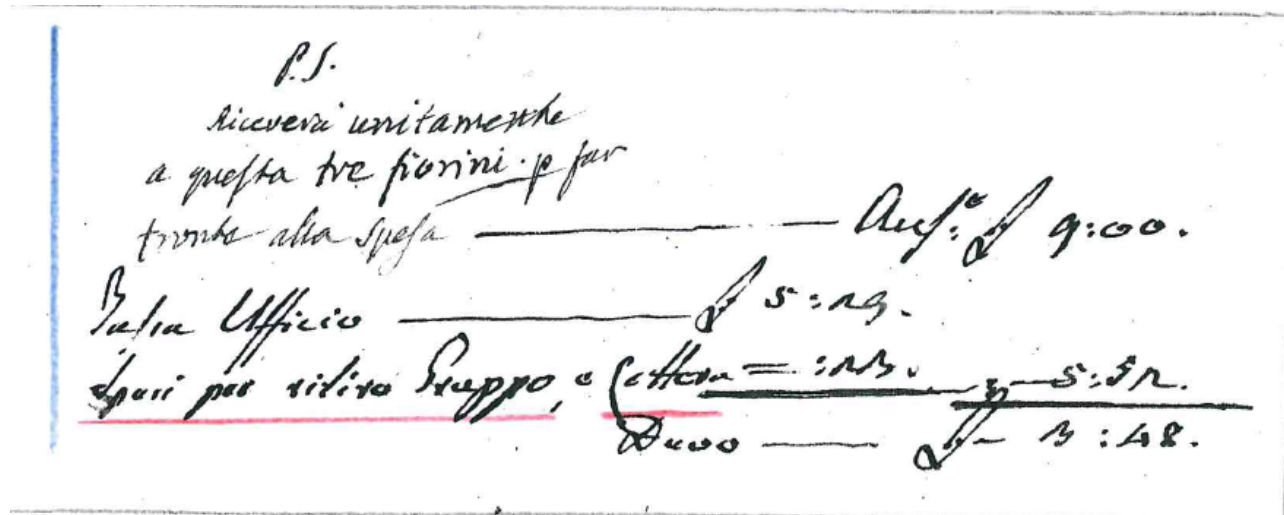 P.S.
Riceverà unitamenthe
a questa tre fiorini p far
fronte alla Spesa — f 9:00.
Ufficio — f
Spesi per ritiro Gruppo, e Lettera =
Devo — f